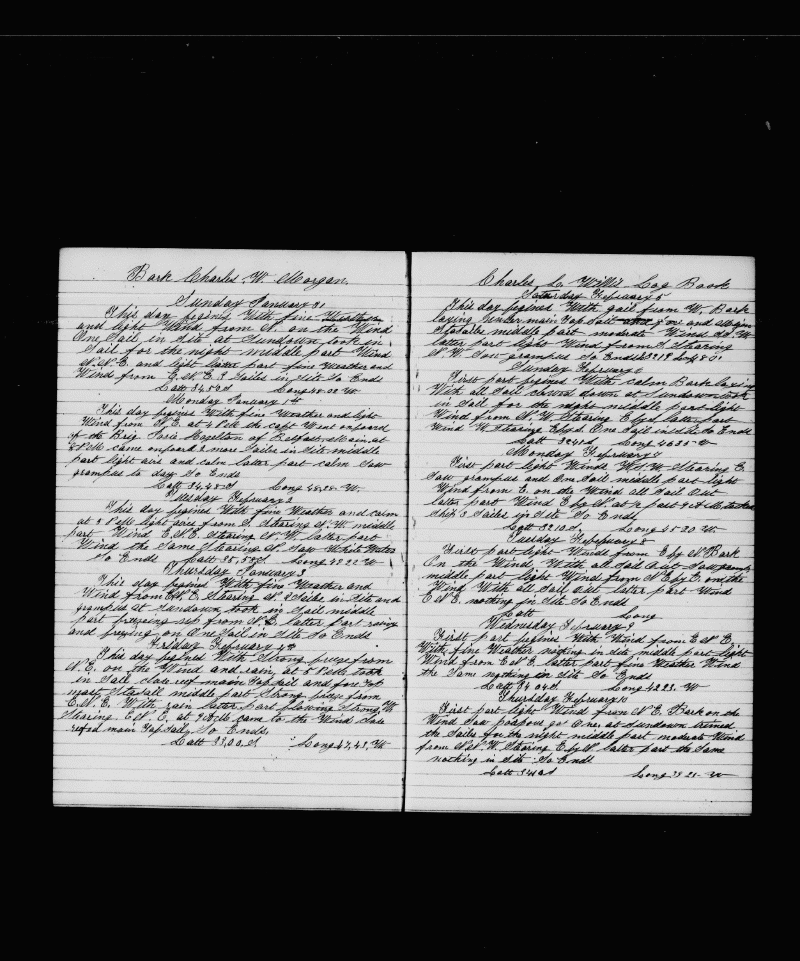 Bark Charles W. Morgan.
Sunday January 31
This day begins With fine Weather
and light Wind from N. on the Wind
One Sail in Site at Sundown took in
Sail for the night middle part Wind
N.N.E. and light latter part fine Weather and
Wind from E.N.E. 2 Sailes in Site So Ends
Latt 34.52 S Long 48.08 W
Monday January 1st
This day begins With fine Weather and light
Wind from N.E. at 4 P.M. the capt Went onboard
of the Brig Hazelton of Belfast Main, at
8 P.M. came onboard 2 more Sailes in Site middle
part light airs and calm latter part calm Saw
grampus to day So Ends
Latt 34.48 S Long 48.28 W.
Tuesday February 2
This day begins With fine Weather and calm
at 8 P.M. light airs from S. Stearing N.W. middle
part Wind E.N.E. Stearing N.W. latter part
Wind the Same Stearing N. Saw White Water
So Ends Latt 35.58 S Long 48.22 W
Thursday January 3
This day begins With fine Weather and
Wind from E.N.E. Stearing N. 2 Sailes in Site and
grampus at Sundown took in Sail middle
part from N.E. latter part
and on One Sail in Site So Ends
Friday February 4th
This day begines With Strong breze from
N.E. on the Wind and rain, at 5 P.M. took
in Sail close reef main Topsail and fore Top
mast Staysail middle part Strong breze from
E.N.E. With rain later part Strong W
Stearing E.N.E. at 9 A.M. came to the Wind close
refed main Topsail, So Ends,
Latt 33.00 S Long 47.43, W
Charles L. Willis Log Book
Saturday February 5
This day begines With gail from W. Bark
laying under main Topsail and fore and
Staysailes middle part moderate Wind W.S.W
latter part light Wind from S Stearing
N.W. Saw grampus So Ends Latt 32.18 Long 48.01
Sunday February 6
First part begines With calm Bark laying
With all Sail clewed down at Sundown took
in Sail for the night middle part light
Wind from N.W. Stearing E by S latter part
Wind W Stearing E by S One Sail in Site So Ends
Latt 32 41 S Long 46 35 W
Monday February 7
First part light Winds W.S.W. Stearing E
Saw grampus and One Sail middle part light
Wind from E. on the Wind all Sail Out
later part Wind E by S. at ½ past 9 A.M. tacked
Ship 3 Sailes in Site So Ends
Latt 32 10 S. Long 45 20 W.
Tuesday February 8
First part light Winds from E by N Bark
On the Wind With all Sail Out Saw
middle part light Wind from N E by E. on the
Wind With all Sail Out latter part Wind
E N E. nothing in Site So Ends
Latt Long
Wednesday February 9
First part begines With Wind from E N E.
With fine Weather nothing in Site middle part light
Wind from E N E. latter part fine Weather Wind
the Same nothing in Site So Ends
Latt 34 04 S. Long 42 23. W
Thursday February 10
First part light Wind from N E. Bark on the
Wind Saw porpose got One, at Sundown trimed
the Sailes for the night middle part moderate Wind
from N N.W. Stearing E by N latter part the Same
nothing in Site So Ends
Latt 34 10 S Long 39 21 W